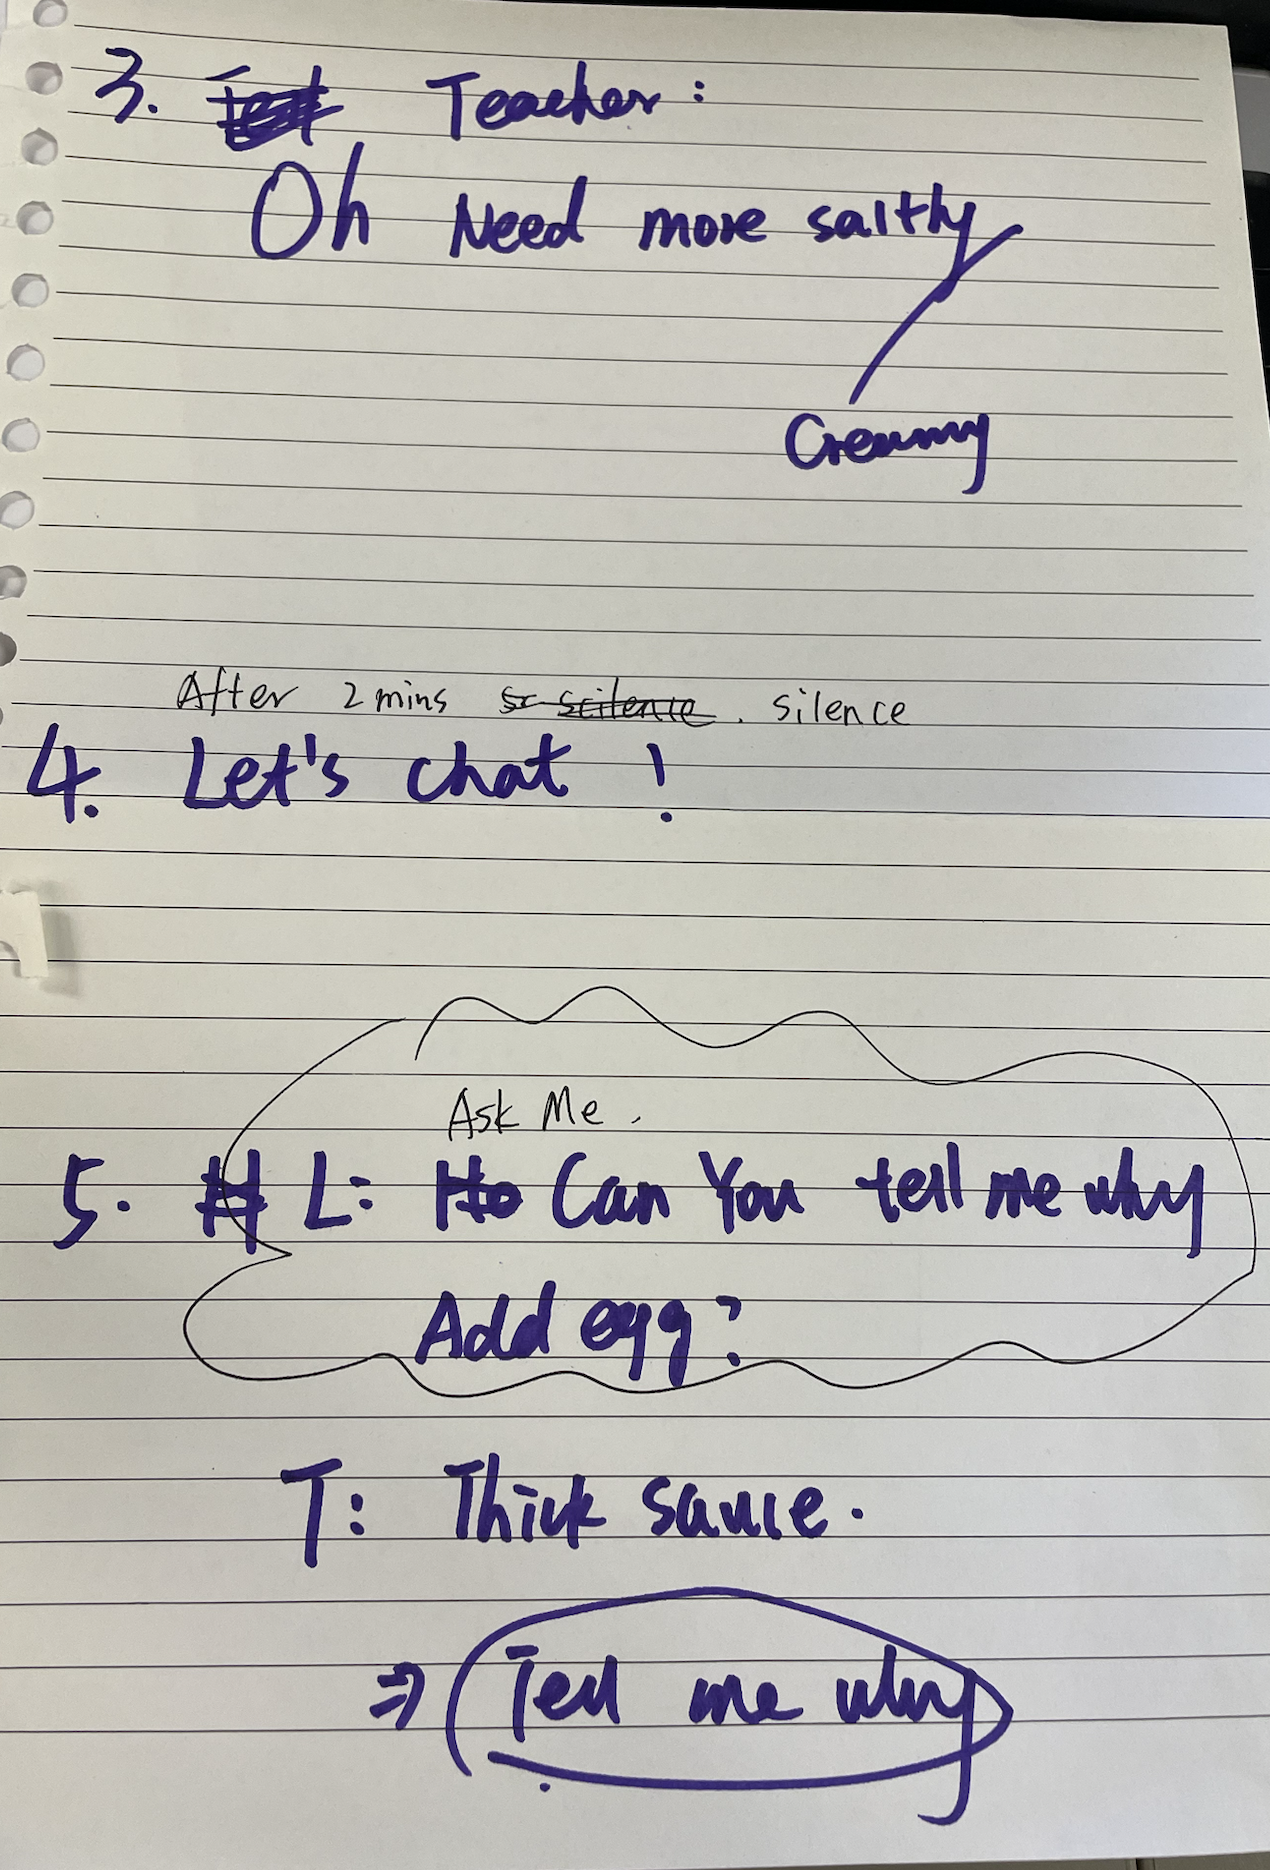 3. Teacher:
Oh Need more saltly
Creamy
After 2 mins scilence. silence
4. Let's chat!
Ask Me.
5. H L: Ho Can You tell me why
Add egg?
T: Thick sauce.
⇒ Tell me why